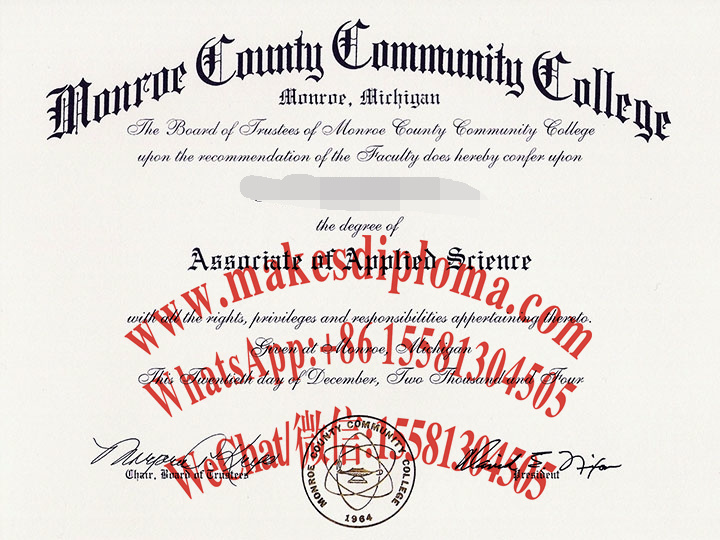 Monroe County Community College
Monroe, Michigan
The Board of Trustees of Monroe County Community College
upon the recommendation of the Faculty does hereby confer upon
the degree of
Associate of Applied Science
www.makesdiploma.com
with all the rights, privileges and responsibilities appertaining thereto.
WhatsApp:+86 15581304505
Given at Monroe, Michigan
This Twentieth day of December, Two Thousand and Four
WeChat/微信:15581304505
Chair, Board of Trustees
President
MONROE COUNTY COMMUNITY COLLEGE
1964